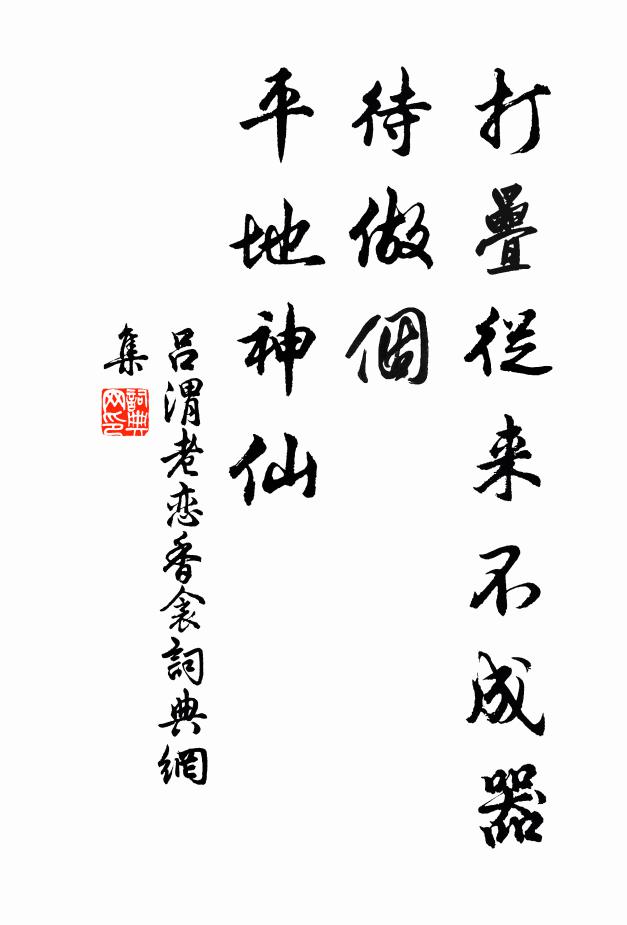 打疊從来不成器
待做個
平地神仙
吕渭老恋香衾詞典網
集
詞典
网印